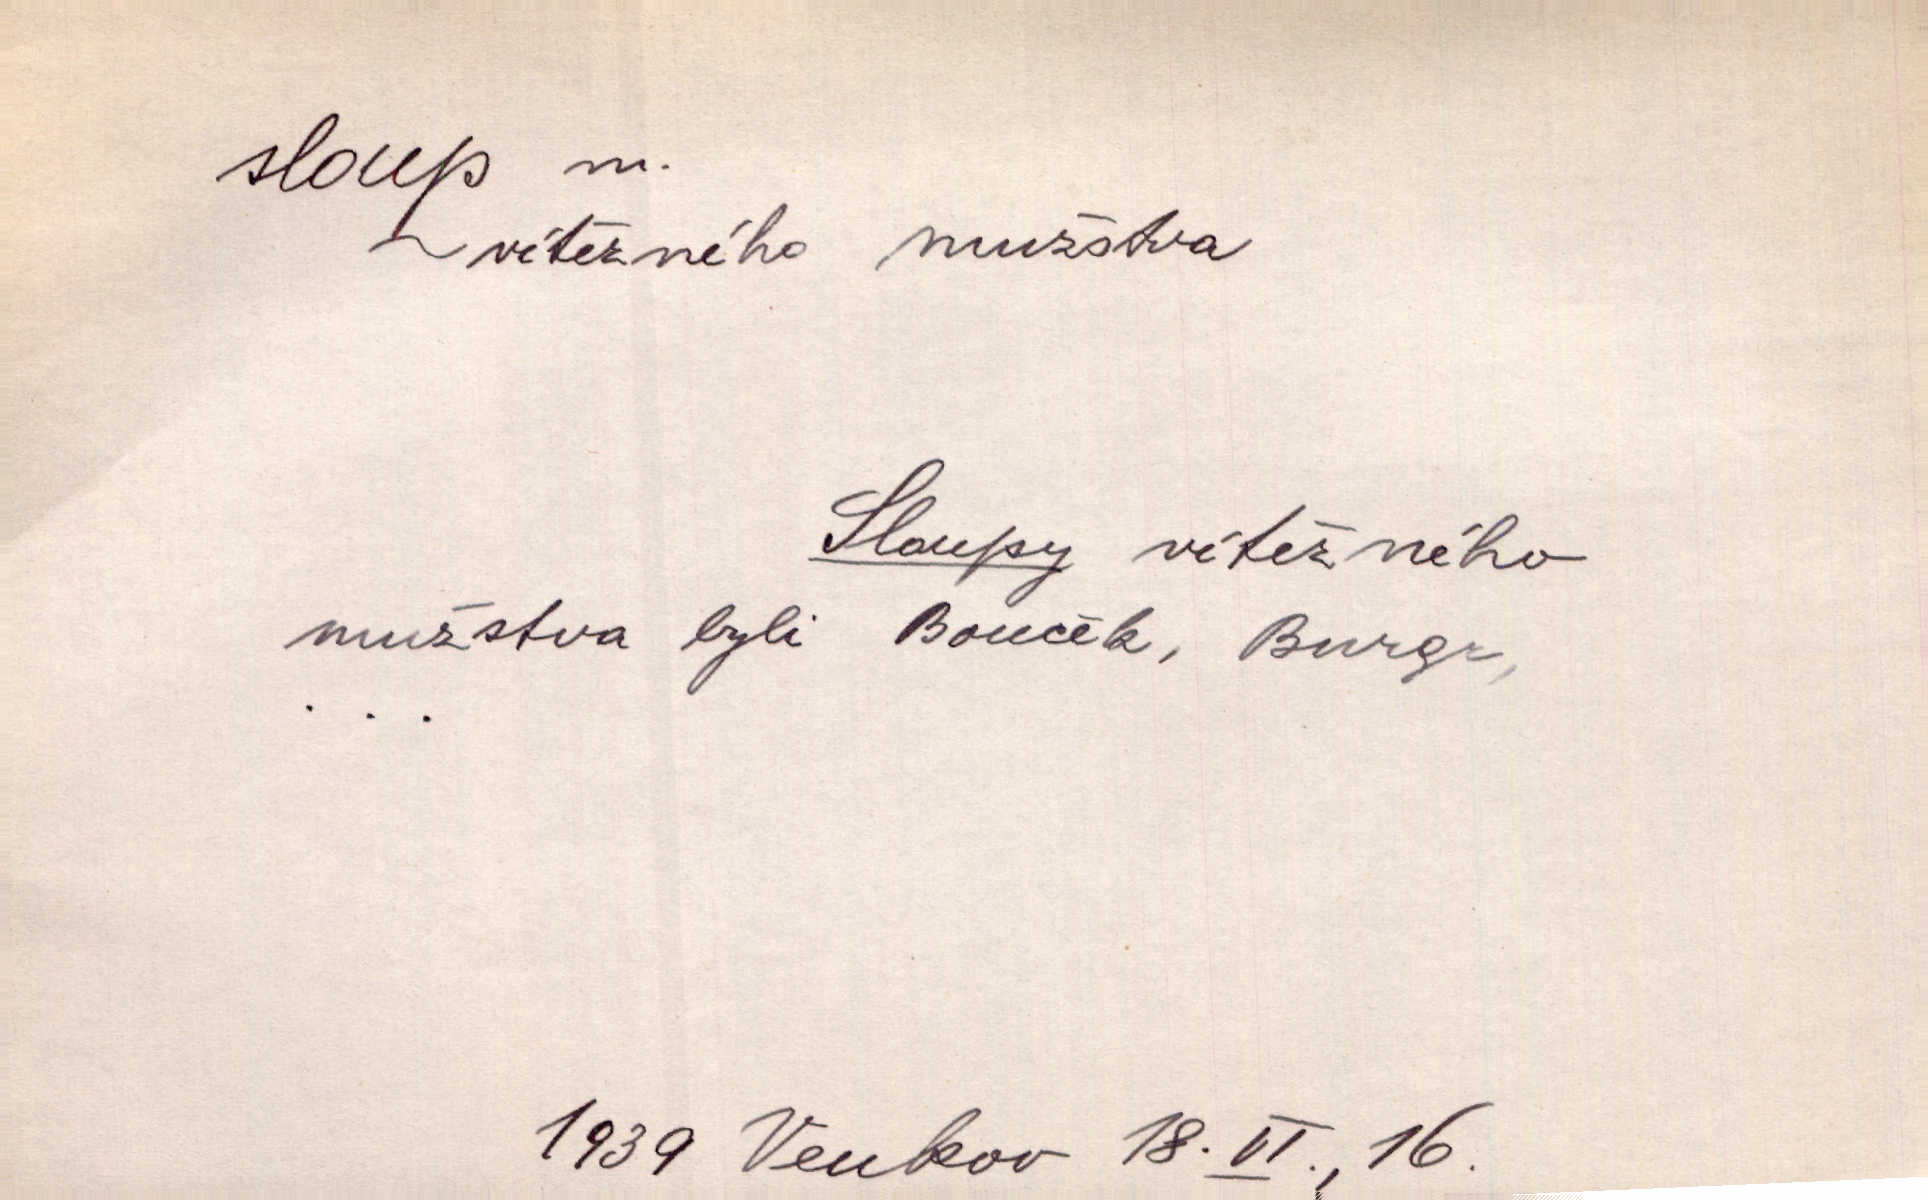 sloup m.
~ vítězného mužstva
Sloupy vítězného
mužstva byli Bouček, Burgr,
...
1939 Venkov 18. VI., 16.